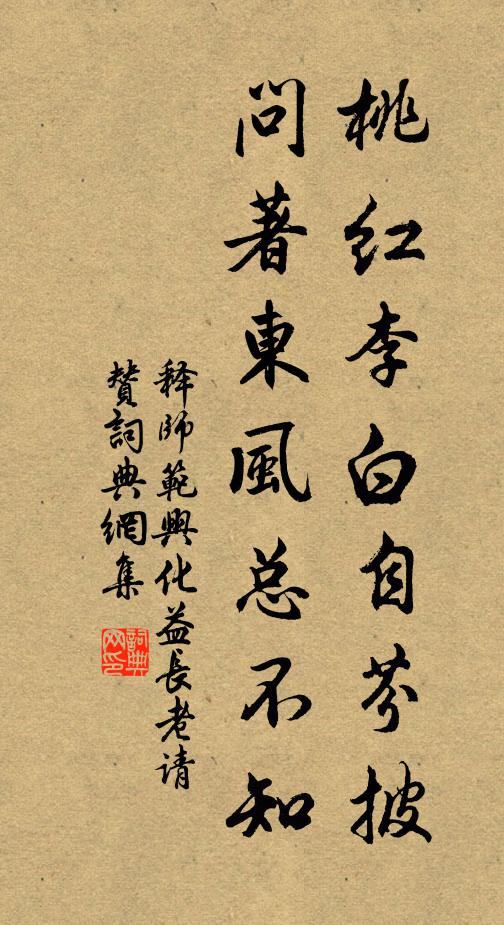 桃红李白自芬披
問著東風总不知
释師範興化益長老请
贊詞典網集
詞典网印